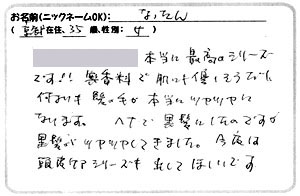 お名前(ニックネームOK): なったん
(京都在住、35歳、性別: 女)
本当に最高のシリーズ
です!! 無香料で肌にも優しそうだし
付けいも髪の毛が本当にツヤツヤに
なります。ヘナで黒髪にしたのですが
黒髪がツヤツヤしてきました。今度は
頭皮ケアシリーズも出してほしいです